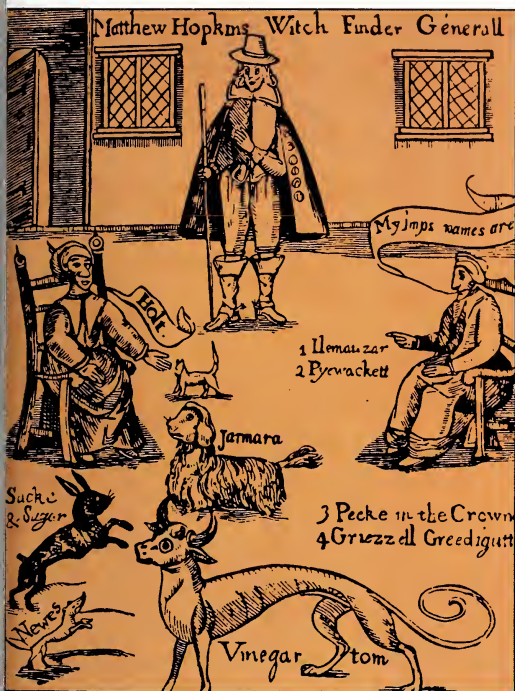 Matthew Hopkins Witch Finder Generall
My Imps names are
Holt
1 Ilemauzar
2 Pyewackett
Jarmara
Sacke
& Suger
3 Pecke in the Crown
4 Griezzell Greedigutt
Newes
Vinegar tom